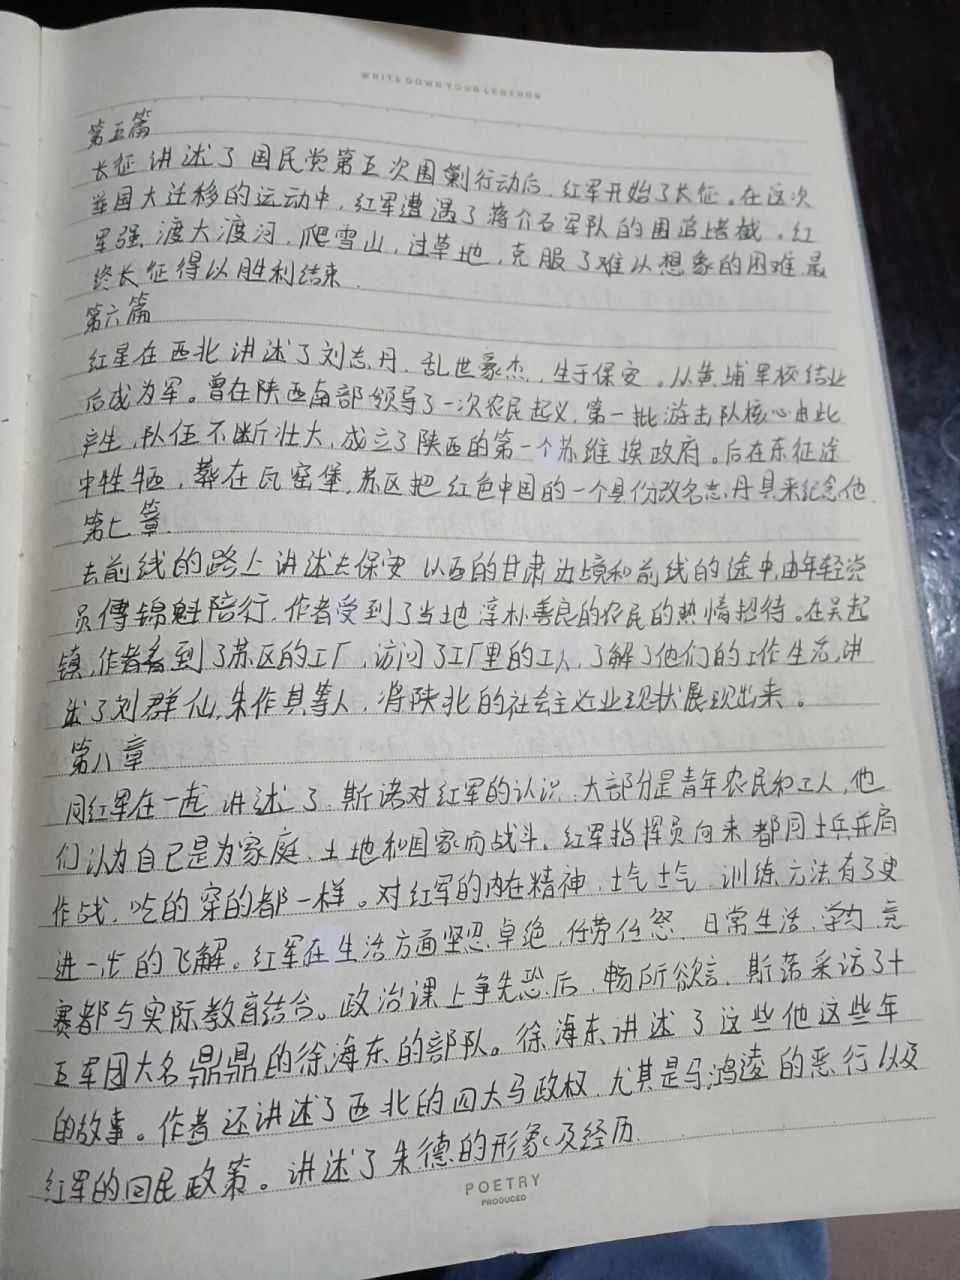 WRITE DOWN YOUR LEGENDS
第五篇
长征 讲述了国民党第五次围剿行动后,红军开始了长征。在这次
举国大迁移的运动中,红军遭遇了蒋介石军队的围追堵截,红
军强渡大渡河,爬雪山,过草地,克服了难以想象的困难最
终长征得以胜利结束.
第六篇
红星在西北 讲述了刘志丹,乱世豪杰,生于保安。从黄埔军校结业
后成为军。曾在陕西南部领导了一次农民起义,第一批游击队核心由此
产生,队伍不断壮大,成立了陕西的第一个苏维埃政府。后在东征途
中牲牺,葬在瓦窑堡,苏区把红色中国的一个县份改名志丹县来纪念他.
第七章
去前线的路上 讲述去保安以西的甘肃边境和前线的途中,由年轻党
员傅锦魁陪行,作者受到了当地淳朴善良的农民的热情招待。在吴起
镇,作者看到了苏区的工厂,访问了工厂里的工人,了解了他们的工作生活,讲
述了刘群仙,朱作其等人,将陕北的社会主义业现状展现出来。
第八章
同红军在一起 讲述了斯诺对红军的认识,大部分是青年农民和工人,他
们认为自己是为家庭、土地和国家而战斗。红军指挥员向来都同士兵并肩
作战,吃的穿的都一样。对红军的内在精神,士气士气,训练方法有了更
进一步的飞解。红军在生活方面坚忍卓绝,任劳任怨、日常生活,学习,竞
赛都与实际教育结合。政治课上争先恐后,畅所欲言、斯诺采访了十
五军团大名鼎鼎的徐海东的部队。徐海东讲述了这些他这些年
的故事。作者还讲述了西北的四大马政权,尤其是马鸿逵的恶行以及
红军的回民政策。讲述了朱德的形象及经历.
POETRY
PRODUCED